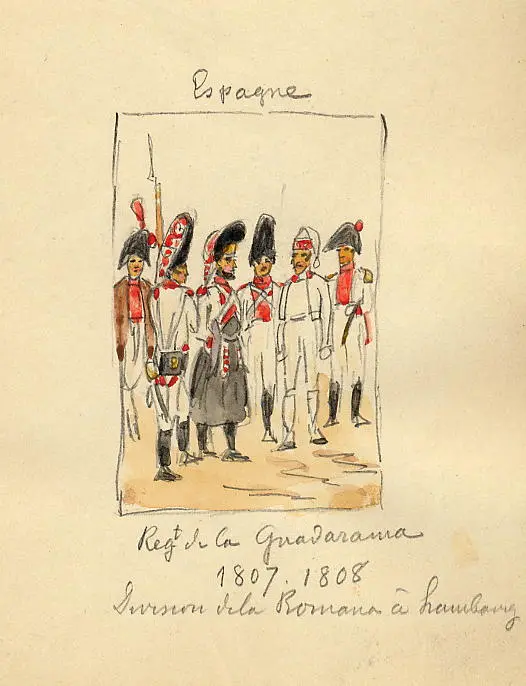 Espagne
Regt de la Guadarama
1807. 1808
Division de la Romana à hambourg